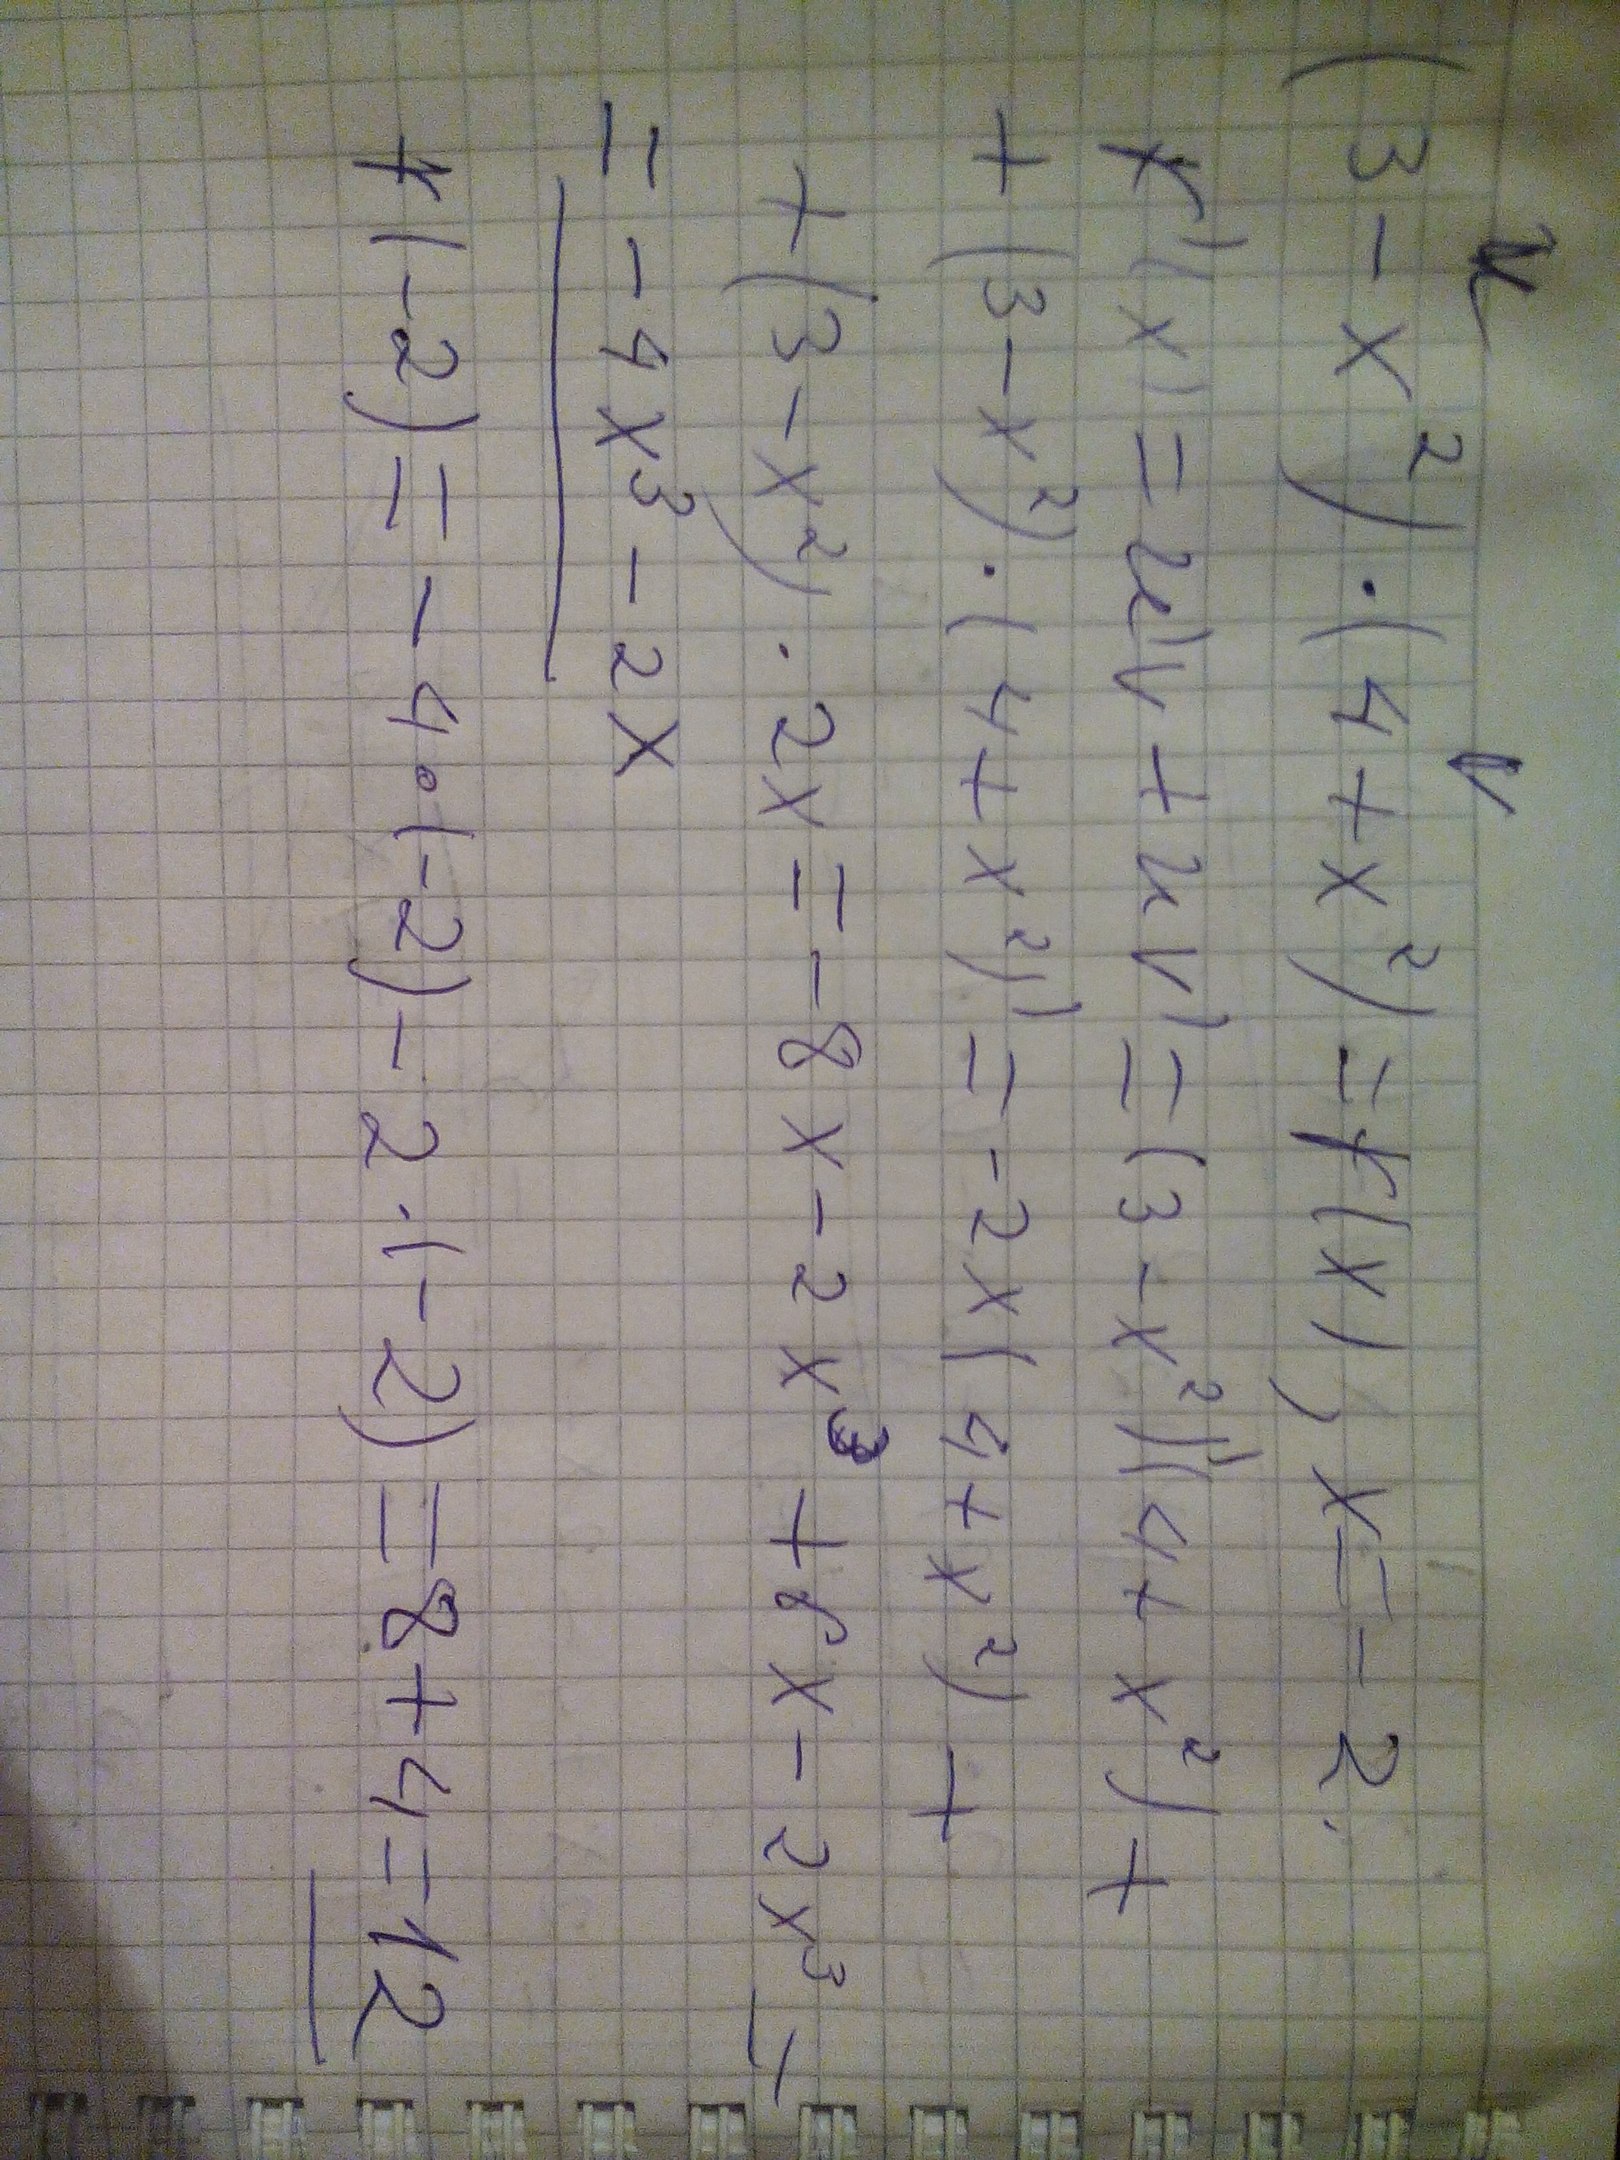 u v
(3-x²)·(4+x²)=f(x), x=-2.
f'(x)=u'v+uv'=(3-x²)'(4+x²)+
+(3-x²)·(4+x²)'=-2x(4+x²)+
+(3-x²)·2x=-8x-2x³+6x-2x³=
=-4x³-2x
f(-2)=-4·(-2)-2·(-2)=8+4=12